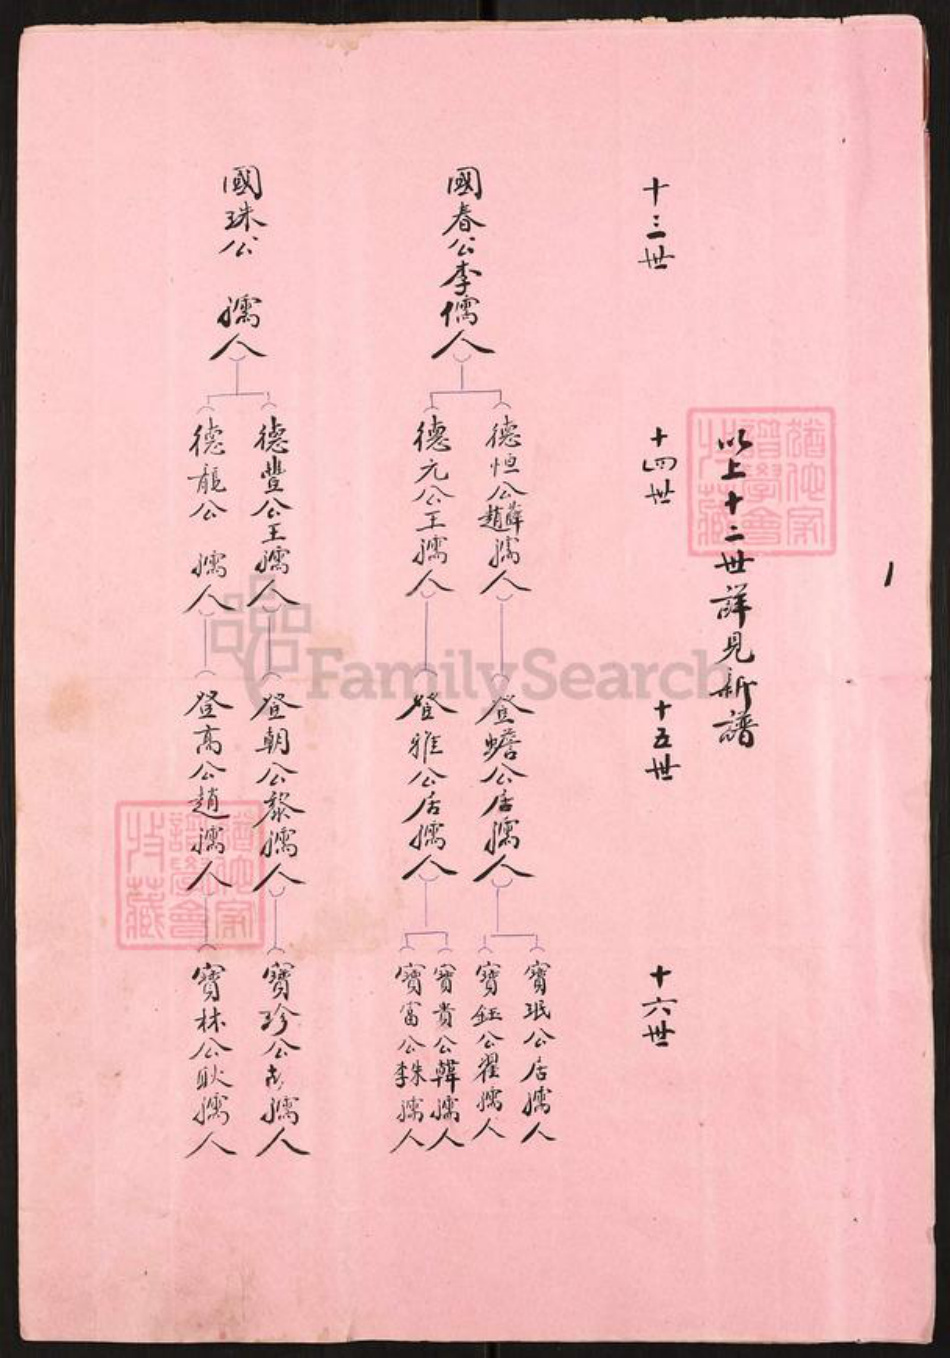 以上十二世詳見新譜
1
十三世
十四世
十五世
十六世
國春公李儒人
德恒公薛趙孺人
登蟾公居孺人
寶珉公居孺人
寶鈺公翟孺人
德元公王孺人
登雅公居孺人
寶貴公韓孺人
寶富公朱李孺人
國珠公 孺人
德豐公王孺人
登朝公黎孺人
寶珍公孺人
德龍公 孺人
登高公趙孺人
寶林公耿孺人
FamilySearch